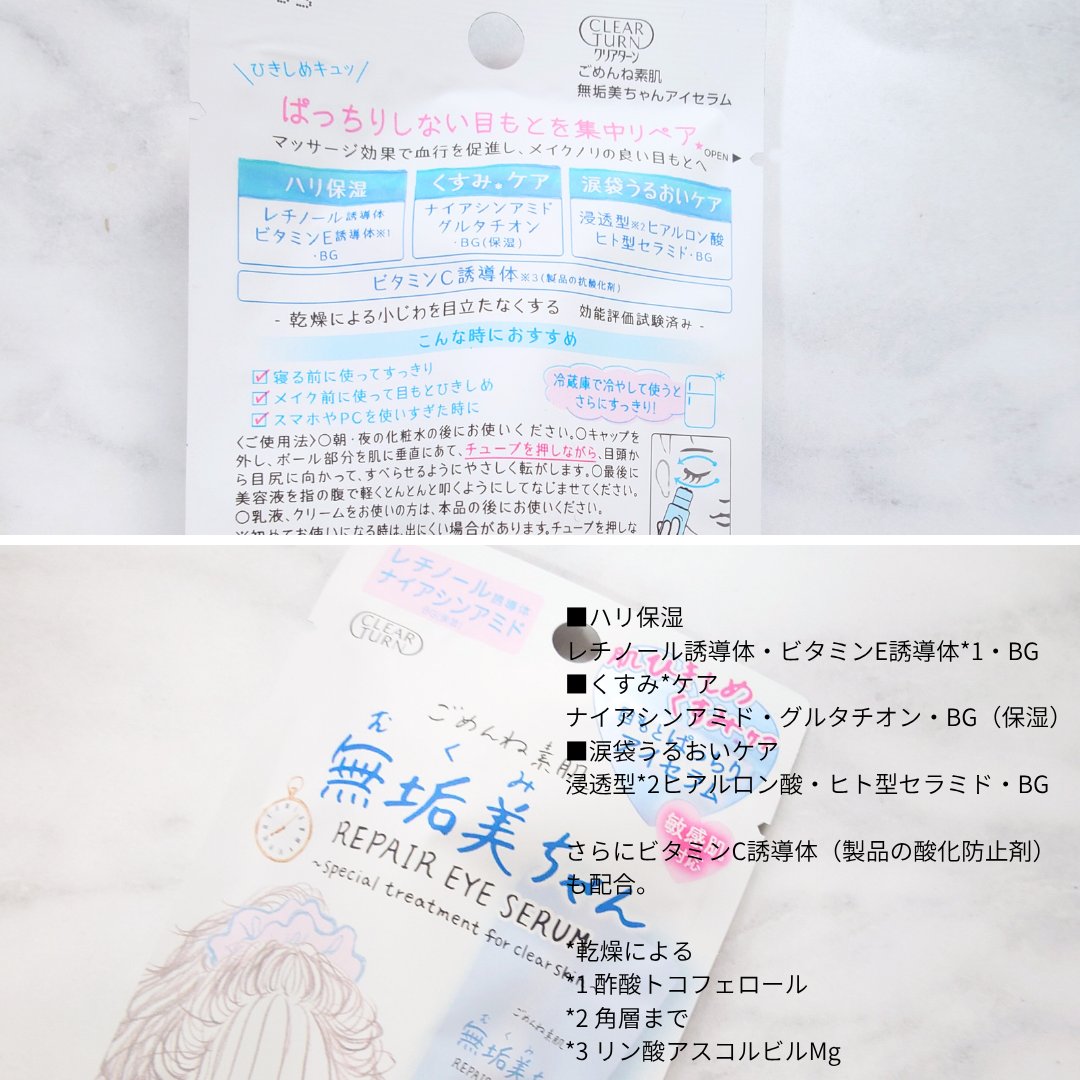 CLEAR
TURN
クリアターン
ごめんね素肌
無垢美ちゃんアイセラム
\ひきしめキュッ/
ぱっちりしない目もとを集中リペア
マッサージ効果で血行を促進し、メイクノリの良い目もとへ
OPEN▶
ハリ保湿
レチノール誘導体
ビタミンE誘導体※1
・BG
くすみ*ケア
ナイアシンアミド
グルタチオン
・BG(保湿)
涙袋うるおいケア
浸透型※2ヒアルロン酸
ヒト型セラミド・BG
ビタミンC誘導体※3(製品の抗酸化剤)
- 乾燥による小じわを目立たなくする 効能評価試験済み -
こんな時におすすめ
寝る前に使ってすっきり
メイク前に使って目もとひきしめ
スマホやPCを使いすぎた時に
冷蔵庫で冷やして使うと
さらにすっきり!
*
〈ご使用法〉○朝・夜の化粧水の後にお使いください。○キャップを
外し、ボール部分を肌に垂直にあて、チューブを押しながら、目頭か
ら目尻に向かって、すべらせるようにやさしく転がします。○最後に
美容液を指の腹で軽くとんとんと叩くようにしてなじませてください。
○乳液、クリームをお使いの方は、本品の後にお使いください。
※初めてお使いになる時は、出にくい場合があります。チューブを押しな
レチノール誘導体
ナイアシンアミド
・BG(保湿)
CLEAR
TURN
肌ひきしめ
くすみ*ケア
目もとぱっちり
アイセラム
敏感肌
対応
ごめんね素肌
むくみ
無垢美ちゃん
REPAIR EYE SERUM
~special treatment for clear skin~
ごめんね素肌
むくみ
無垢美ちゃん
REPAIR
■ハリ保湿
レチノール誘導体・ビタミンE誘導体*1・BG
■くすみ*ケア
ナイアシンアミド・グルタチオン・BG（保湿）
■涙袋うるおいケア
浸透型*2ヒアルロン酸・ヒト型セラミド・BG
さらにビタミンC誘導体（製品の酸化防止剤）
も配合。
*乾燥による
*1 酢酸トコフェロール
*2 角層まで
*3 リン酸アスコルビルMg